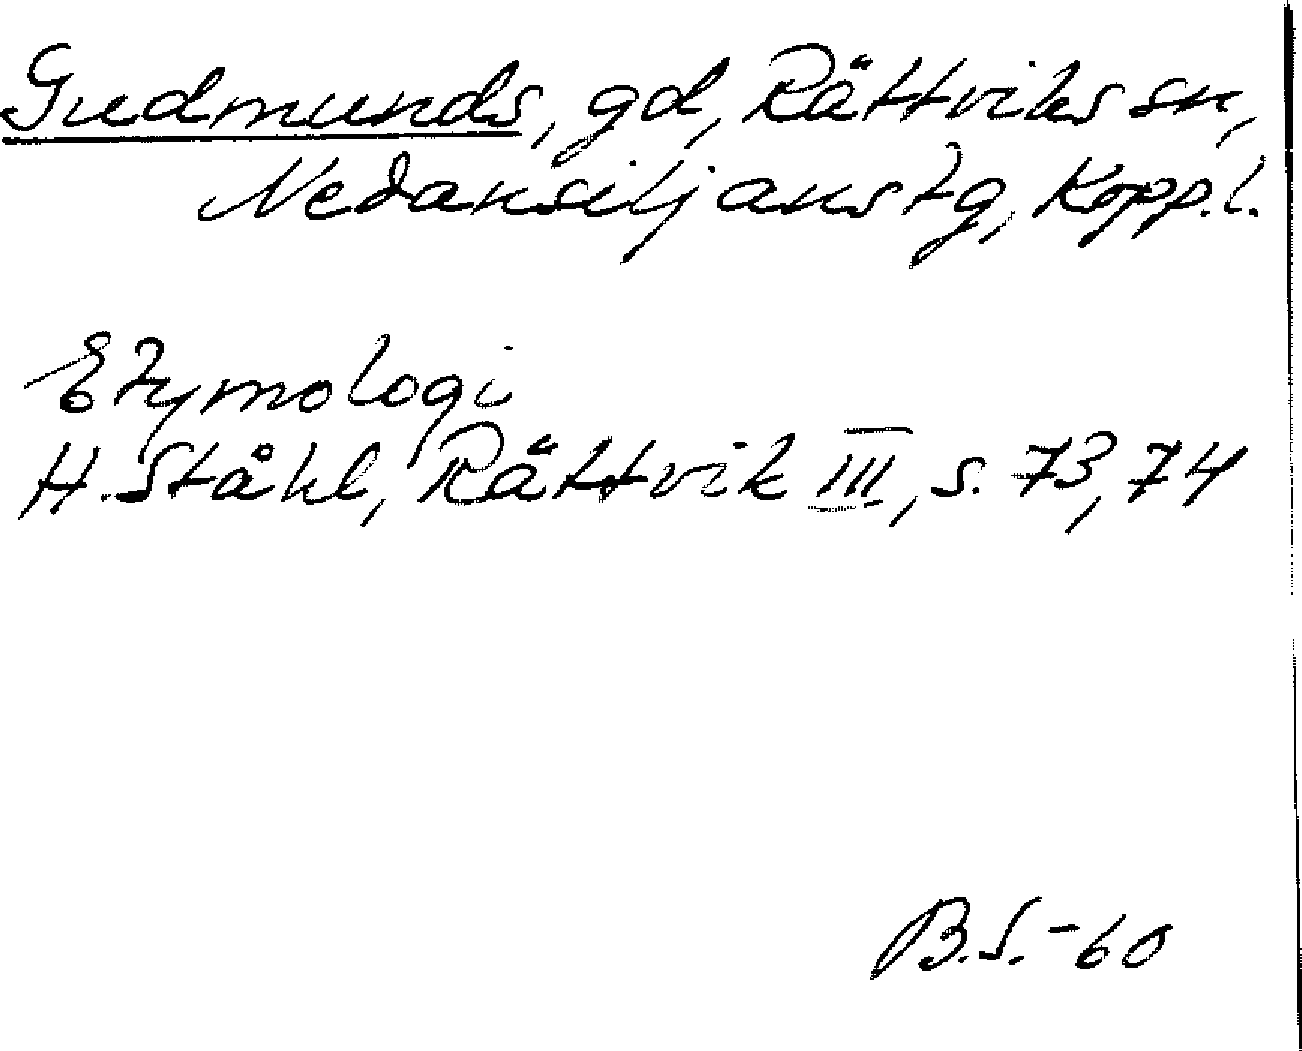 Gudmunds, gd, Rättviks sn,
Nedansiljans tg, Kopp.l.
Etymologi
H. Ståhl, Rättvik III, s. 73, 74
B.S. -60